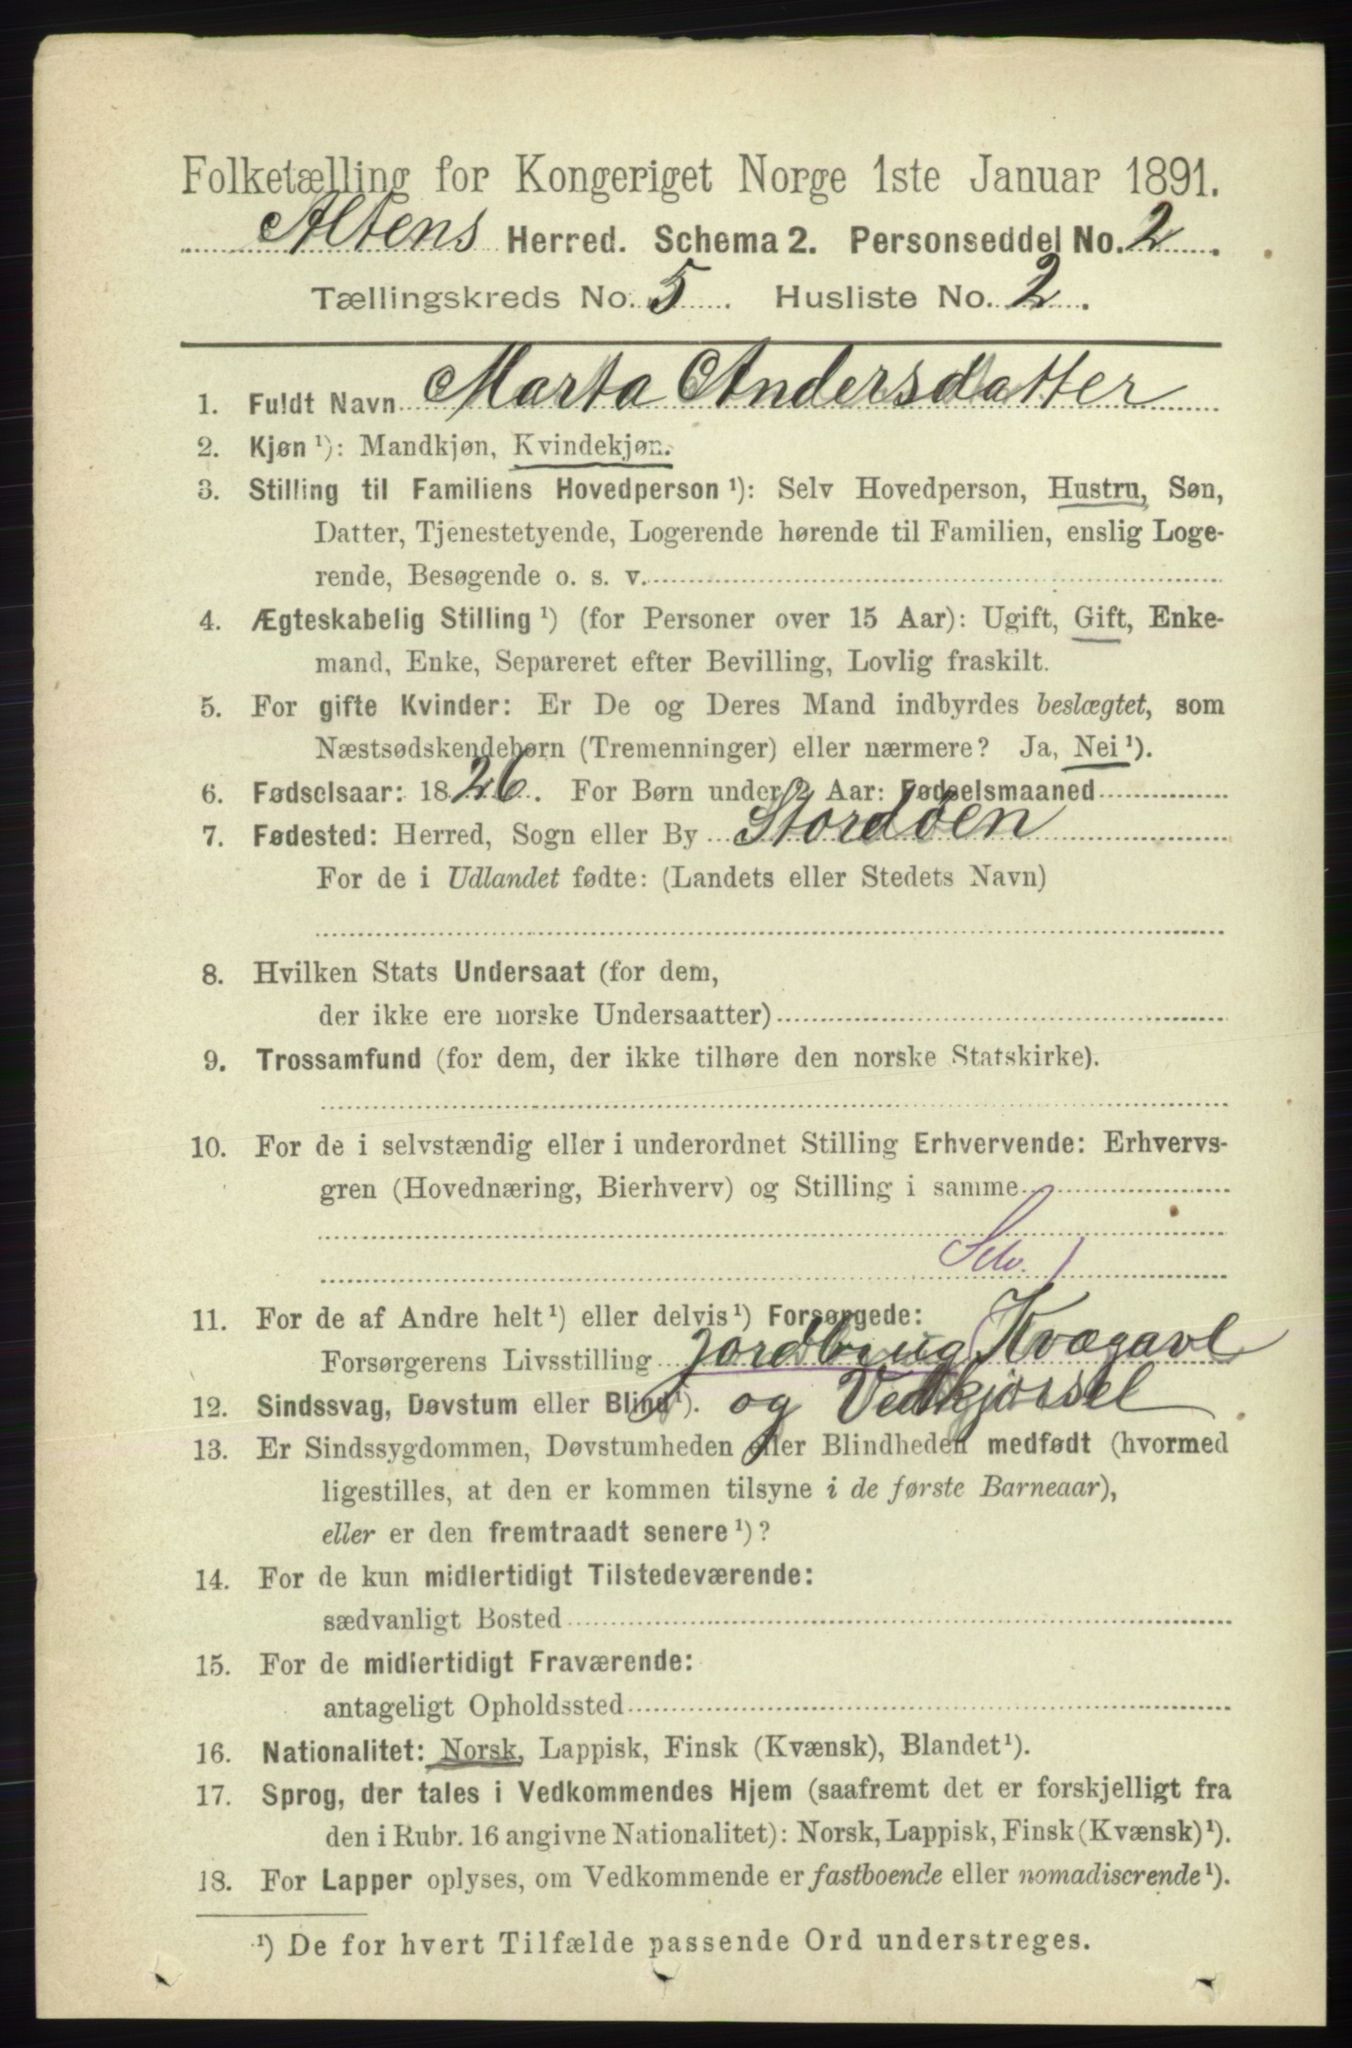 Folketælling for Kongeriget Norge 1ste Januar 1891.
Altens Herred. Schema 2. Personseddel No. 2.
Tællingskreds No. 5. Husliste No. 2.
1. Fuldt Navn Marta Andersdatter
2. Kjøn ¹): Mandkjøn, Kvindekjøn.
3. Stilling til Familiens Hovedperson ¹): Selv Hovedperson, Hustru, Søn,
Datter, Tjenestetyende, Logerende hørende til Familien, enslig Loge-
rende, Besøgende o. s. v.
4. Ægteskabelig Stilling ¹) (for Personer over 15 Aar): Ugift, Gift, Enke-
mand, Enke, Separeret efter Bevilling, Lovlig fraskilt.
5. For gifte Kvinder: Er De og Deres Mand indbyrdes beslægtet, som
Næstsødskendebørn (Tremenninger) eller nærmere? Ja, Nei ¹).
6. Fødselsaar: 1826. For Børn under 2 Aar: Fødselsmaaned
7. Fødested: Herred, Sogn eller By Stordöen
For de i Udlandet fødte: (Landets eller Stedets Navn)
8. Hvilken Stats Undersaat (for dem,
der ikke ere norske Undersaatter)
9. Trossamfund (for dem, der ikke tilhøre den norske Statskirke).
10. For de i selvstændig eller i underordnet Stilling Erhvervende: Erhvervs-
gren (Hovednæring, Bierhverv) og Stilling i samme
Selv. 1
11. For de af Andre helt ¹) eller delvis ¹) Forsørgede:
Forsørgerens Livsstilling Jordbrug Kvægavl
12. Sindssvag, Døvstum eller Blind ¹). og Vedkjörsel
13. Er Sindssygdommen, Døvstumheden eller Blindheden medfødt (hvormed
ligestilles, at den er kommen tilsyne i de første Barneaar),
eller er den fremtraadt senere ¹)?
14. For de kun midlertidigt Tilstedeværende:
sædvanligt Bosted
15. For de midlertidigt Fraværende:
antageligt Opholdssted
16. Nationalitet: Norsk, Lappisk, Finsk (Kvænsk), Blandet ¹).
17. Sprog, der tales i Vedkommendes Hjem (saafremt det er forskjelligt fra
den i Rubr. 16 angivne Nationalitet): Norsk, Lappisk, Finsk (Kvænsk) ¹).
18. For Lapper oplyses, om Vedkommende er fastboende eller nomadiserende ¹).
¹) De for hvert Tilfælde passende Ord understreges.